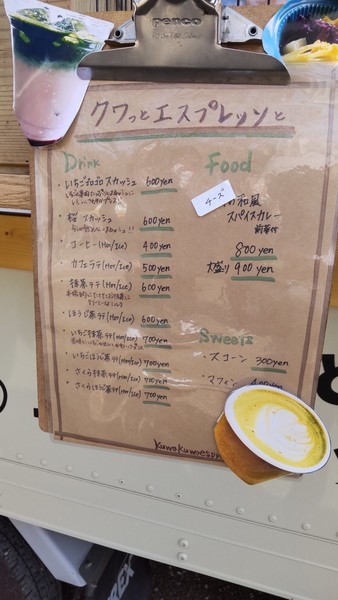 penco
クワっとエスプレッソと
Drink
・いちごゴロゴロスカッシュ 600yen
・桜スカッシュ 600yen
・コーヒー(Hot/Ice) 400yen
・カフェラテ(Hot/Ice) 500yen
・抹茶ラテ(Hot/Ice) 600yen
・ほうじ茶ラテ(Hot/Ice) 600yen
・いちご抹茶ラテ(Hot/Ice) 700yen
・いちごほうじ茶ラテ(Hot/Ice) 700yen
・さくら抹茶ラテ(Hot/Ice) 700yen
・さくらほうじ茶ラテ(Hot/Ice) 700yen
Food
チーズ
和風
スパイスカレー
800yen
大盛り 900yen
Sweets
・スコーン 300yen
・マフィン
kuwakuwaesp